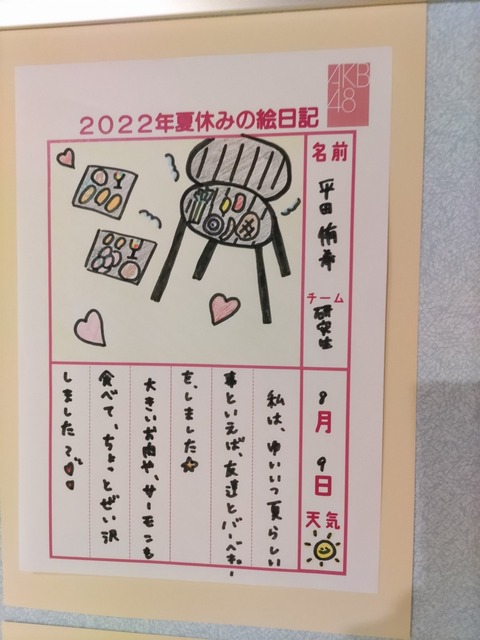 AKB
48
2022年夏休みの絵日記
名前
平田侑希
チーム
研究生
8月9日
天気
私は、ゆいいつ夏らしい
事といえば、友達とバーベキュー
を、しました☆
大きいお肉や、サーモンも
食べて、ちょっとぜい沢
しました♡